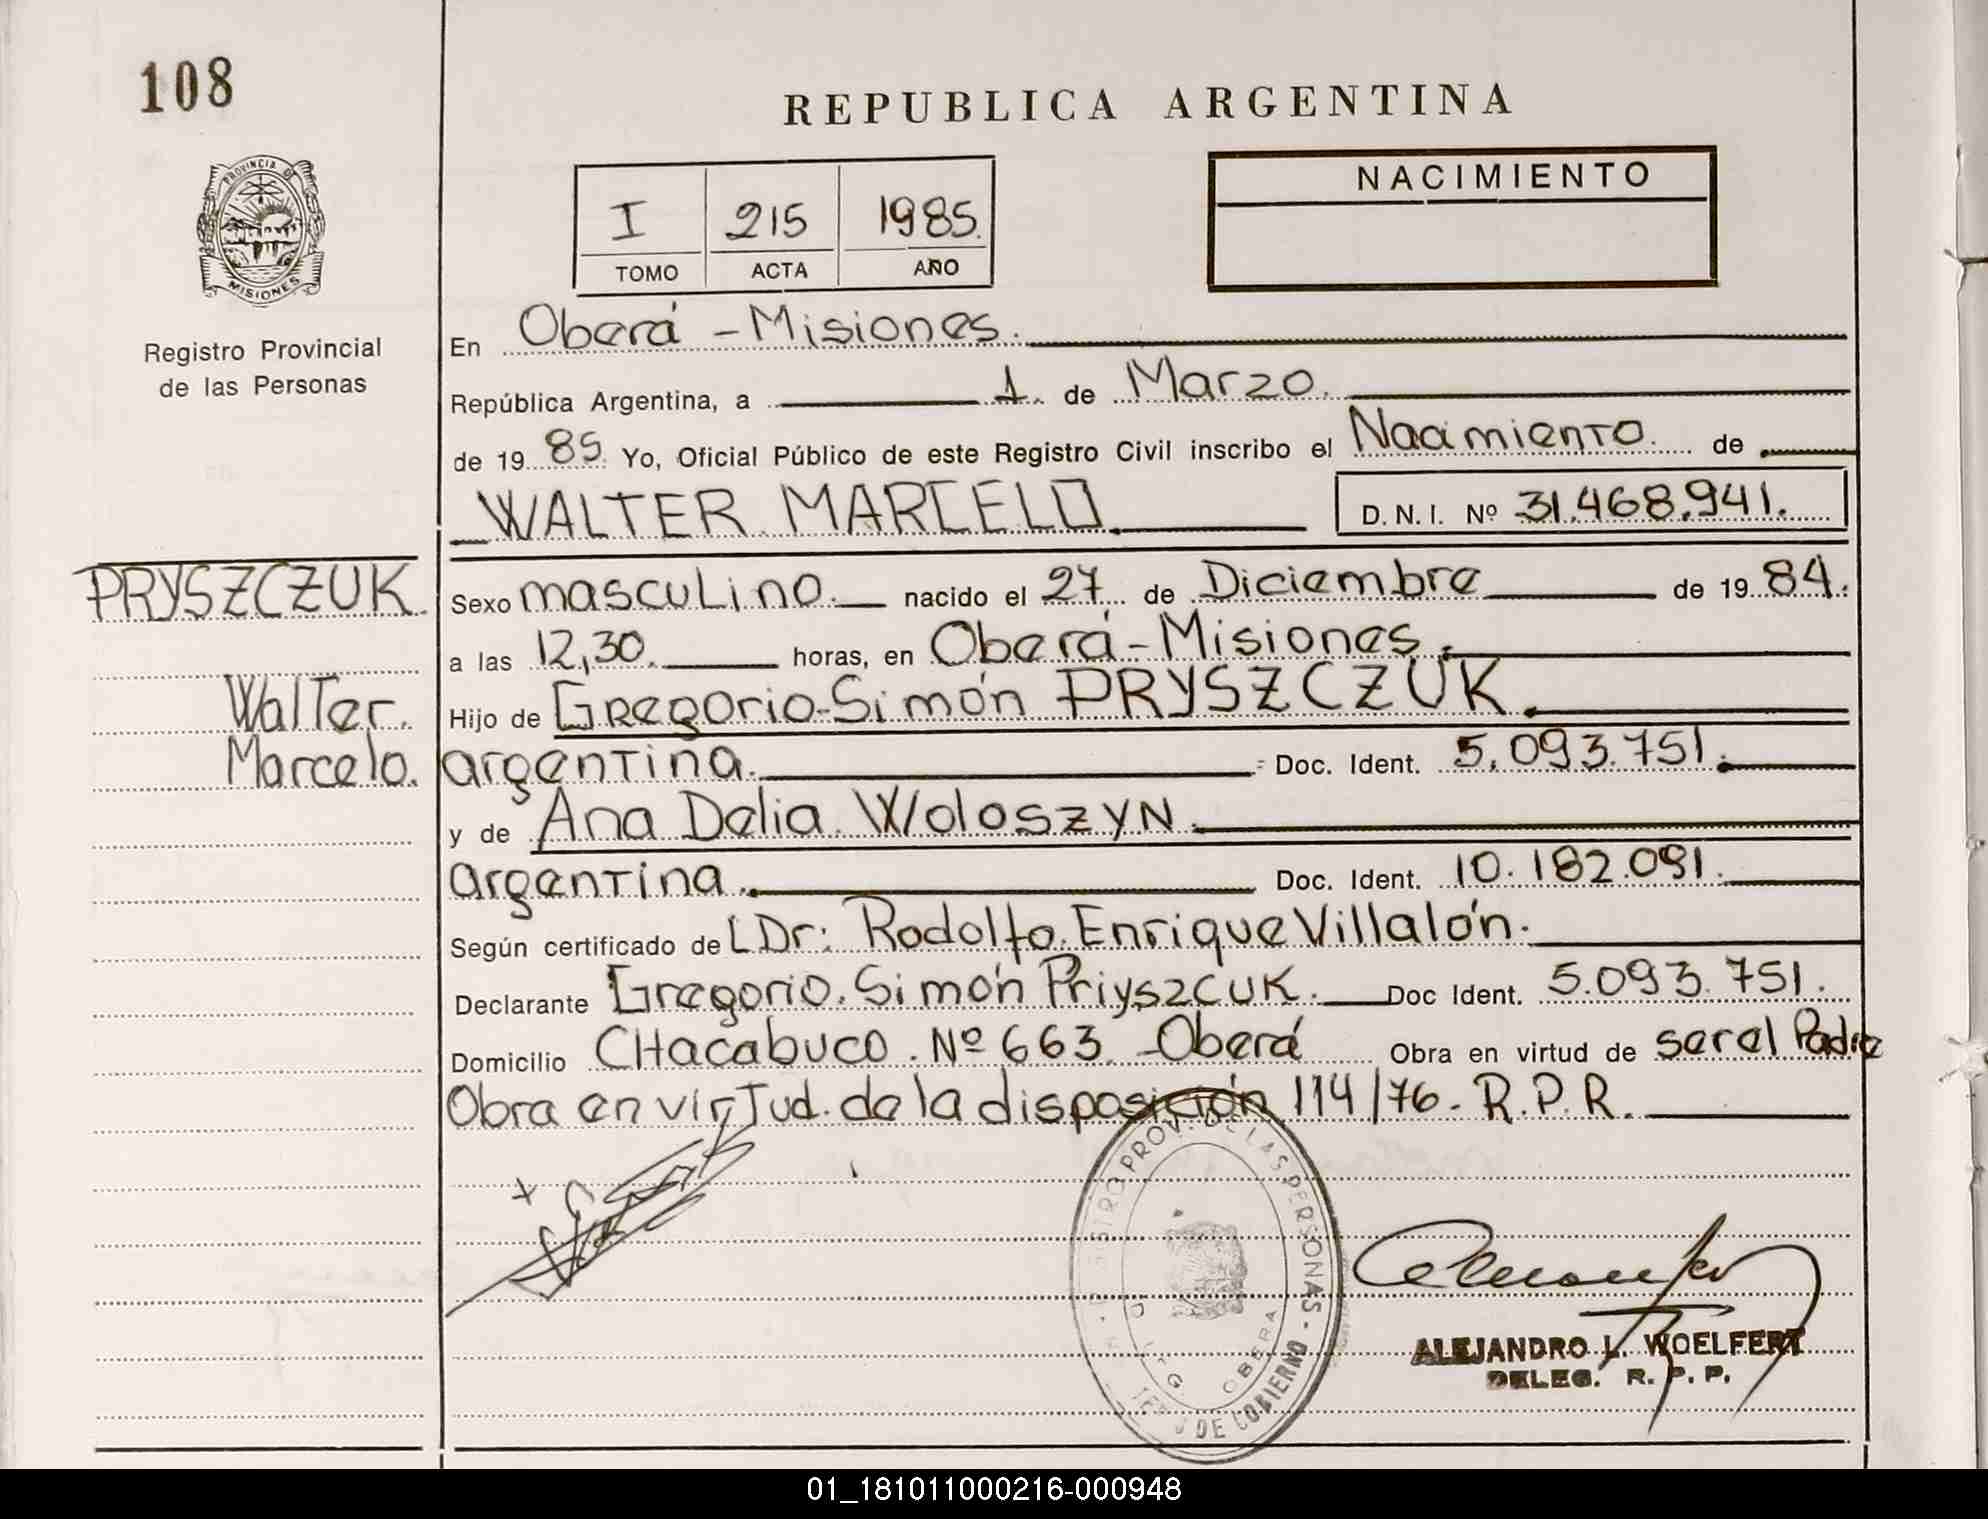 108
REPUBLICA ARGENTINA
PROVINCIA DE
MISIONES
Registro Provincial
de las Personas
I 215 1985.
TOMO ACTA AÑO
NACIMIENTO
En Oberá - Misiones.
República Argentina, a 1. de Marzo.
de 19 85. Yo, Oficial Público de este Registro Civil inscribo el Nacimiento. de
WALTER MARCELO D.N.I. Nº 31.468.941.
PRYSZCZUK.
Walter.
Marcelo.
Sexo masculino. nacido el 27 de Diciembre de 19 84.
a las 12,30. horas, en Oberá - Misiones.
Hijo de Gregorio Simón PRYSZCZUK.
argentina. Doc. Ident. 5.093.751.
y de Ana Delia Woloszyn.
argentina. Doc. Ident. 10.182.091.
Según certificado de L Dr: Rodolfo Enrique Villalón.
Declarante Gregorio Simón Priyszcuk. Doc Ident. 5.093.751.
Domicilio CHacabuco Nº 663 - Oberá Obra en virtud de ser el Padre
Obra en virtud de la disposición 114/76 - R.P.R.
PROV. DE LAS PERSONAS
OBERA
DE GOBIERNO
ALEJANDRO L. WOELFERT
DELEG. R. P. P.
01_181011000216-000948